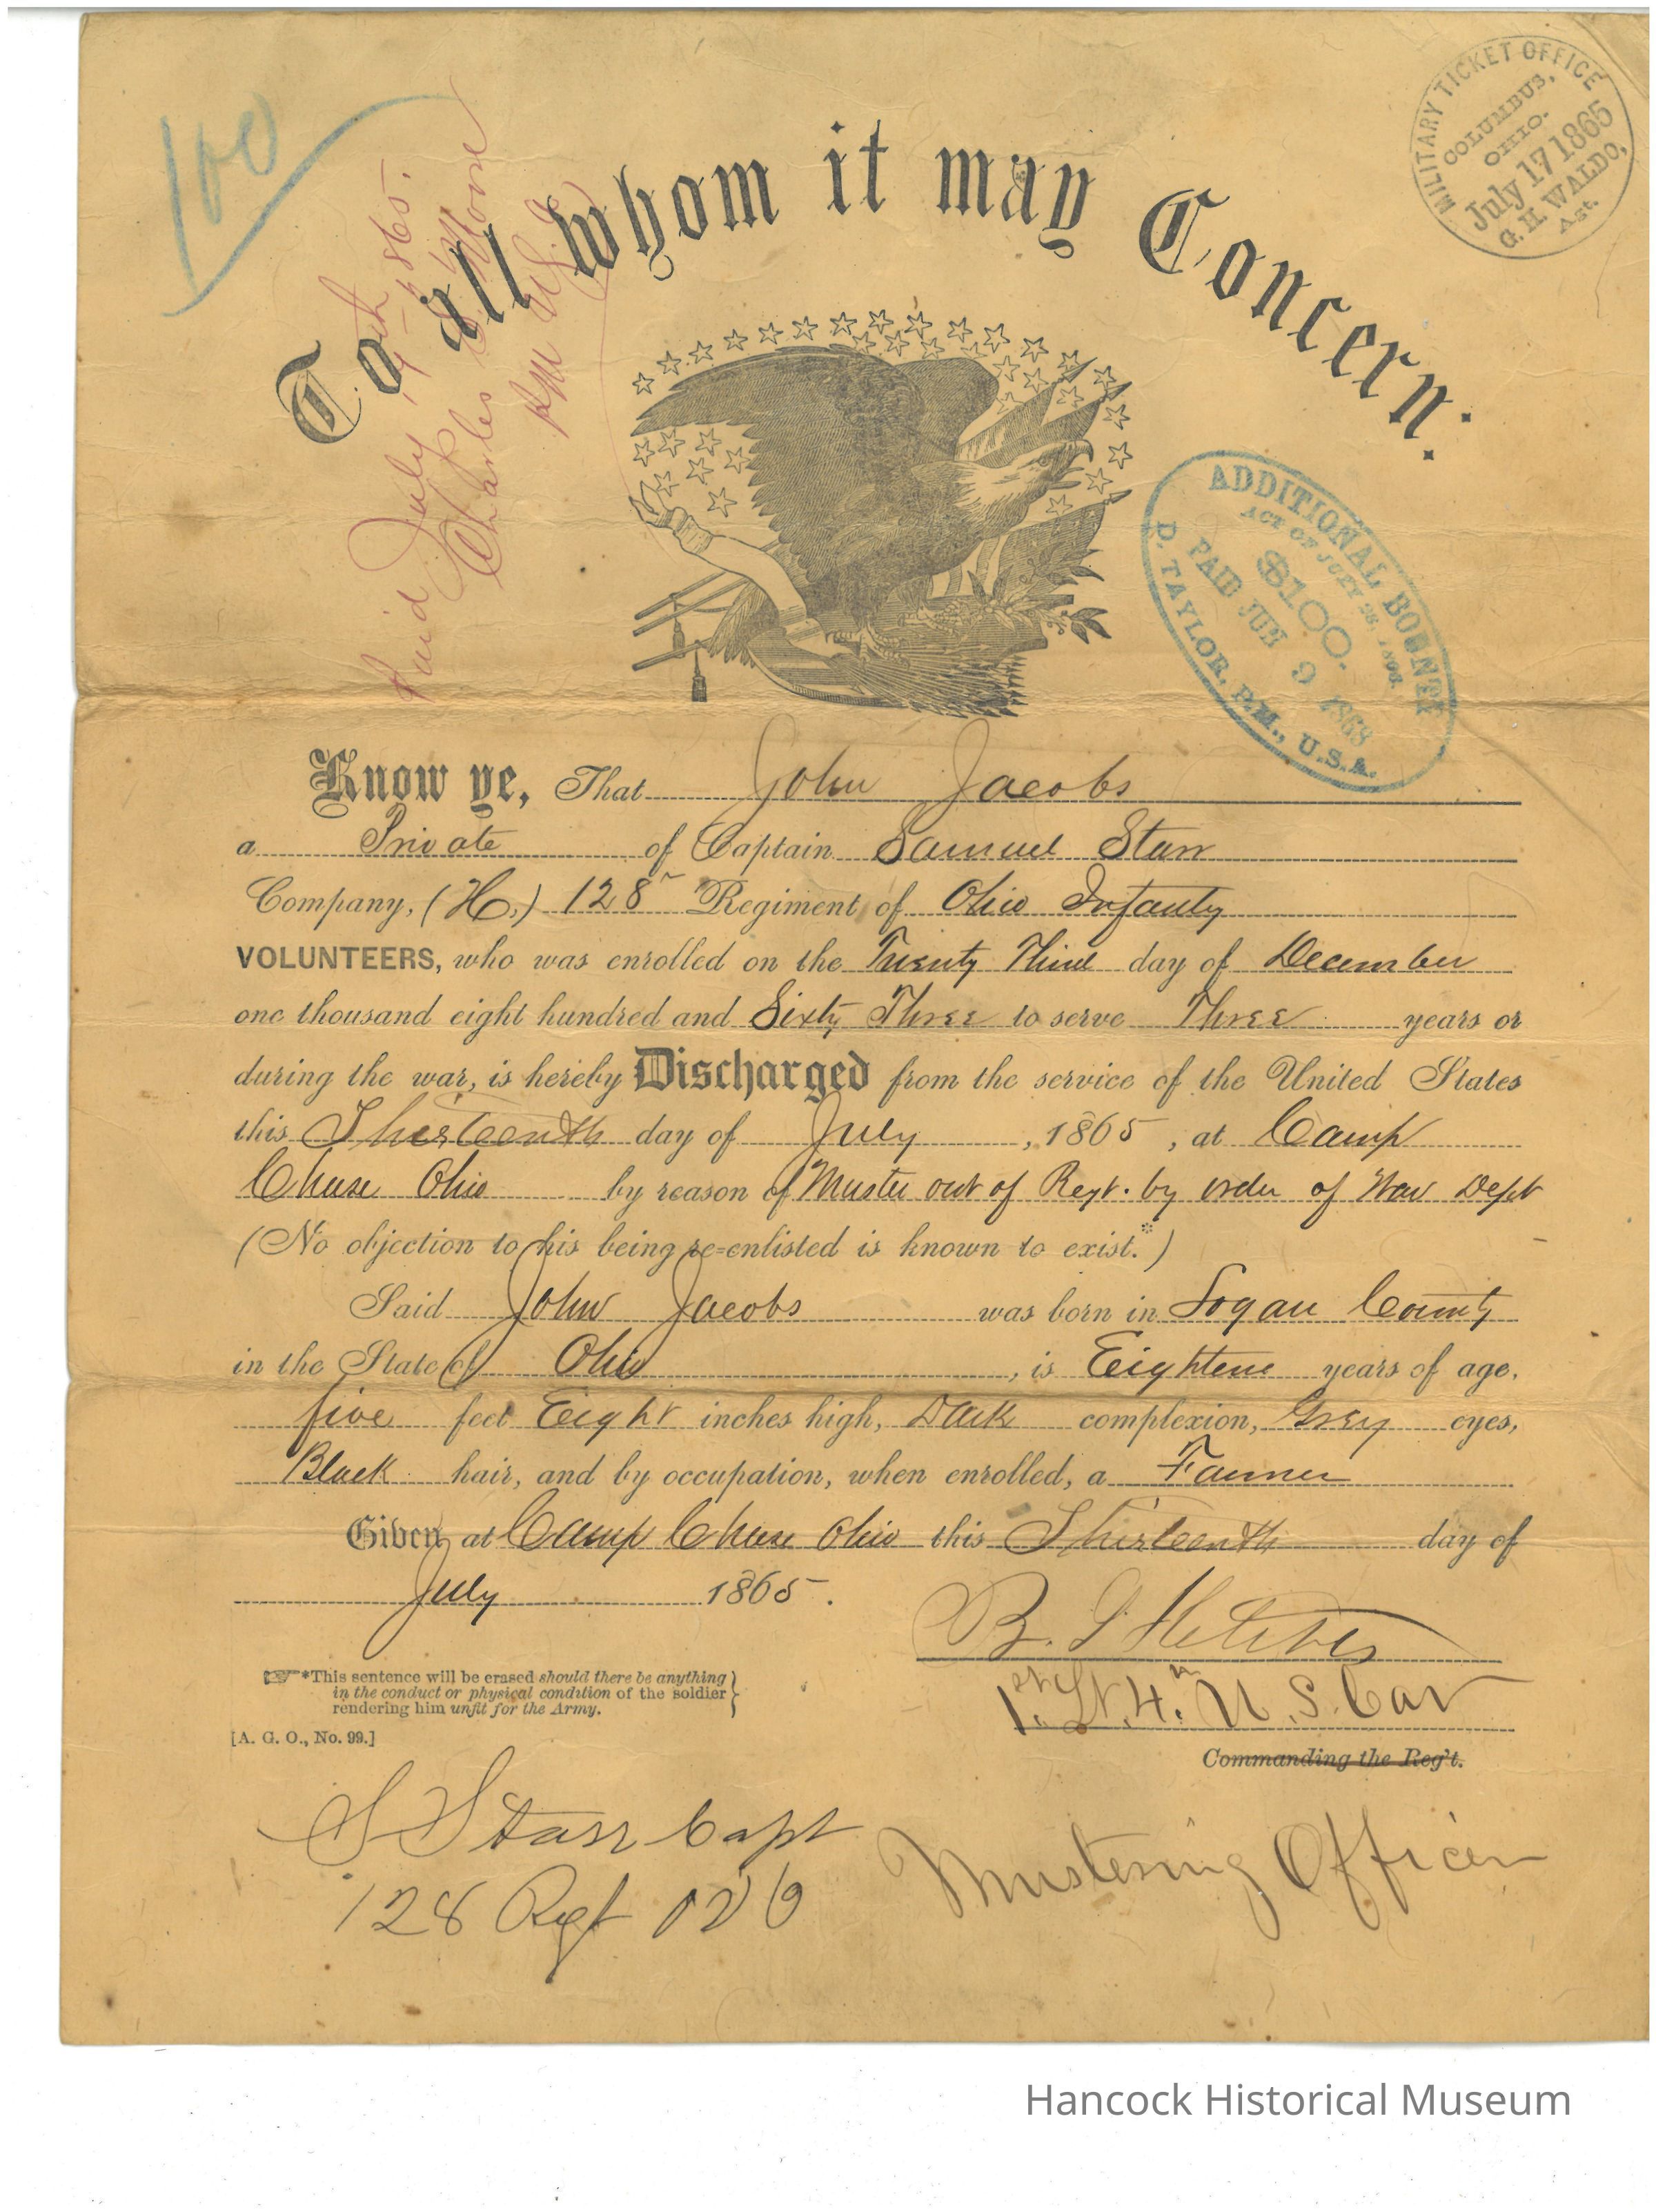 100
MILITARY TICKET OFFICE
COLUMBUS,
OHIO.
July 17 1865
G. H. WALDO,
Agt.
Paid July 17th 1865.
Charles C. Moore
PM USA
To all whom it may Concern:
ADDITIONAL BOUNTY
ACT OF JULY 28, 1866
$100.
PAID JUN 9 1868
D. TAYLOR, P.M., U.S.A.
Know ye, That John Jacobs
a Private of Captain Samuel Starr
Company, (H,) 128" Regiment of Ohio Infanty
VOLUNTEERS, who was enrolled on the Twenty Third day of December
one thousand eight hundred and Sixty Three to serve Three years or
during the war, is hereby Discharged from the service of the United States
this Thirteenth day of July, 1865, at Camp
Chase Ohio by reason of Muster out of Regt. by order of War Dept
(No objection to his being re-enlisted is known to exist.*)
Said John Jacobs was born in Logan County
in the State of Ohio, is Eighteen years of age,
five feet Eight inches high, Dark complexion, Grey eyes,
Black hair, and by occupation, when enrolled, a Farmer
Given at Camp Chase Ohio this Thirteenth day of
July 1865.
1st. Lt. 4th. U. S. Cav
Commanding the Reg't.
*This sentence will be erased should there be anything
in the conduct or physical condition of the soldier
rendering him unfit for the Army.
[A. G. O., No. 99.]
S Starr Capt
128 Regt OVI
Mustering Officer
Hancock Historical Museum